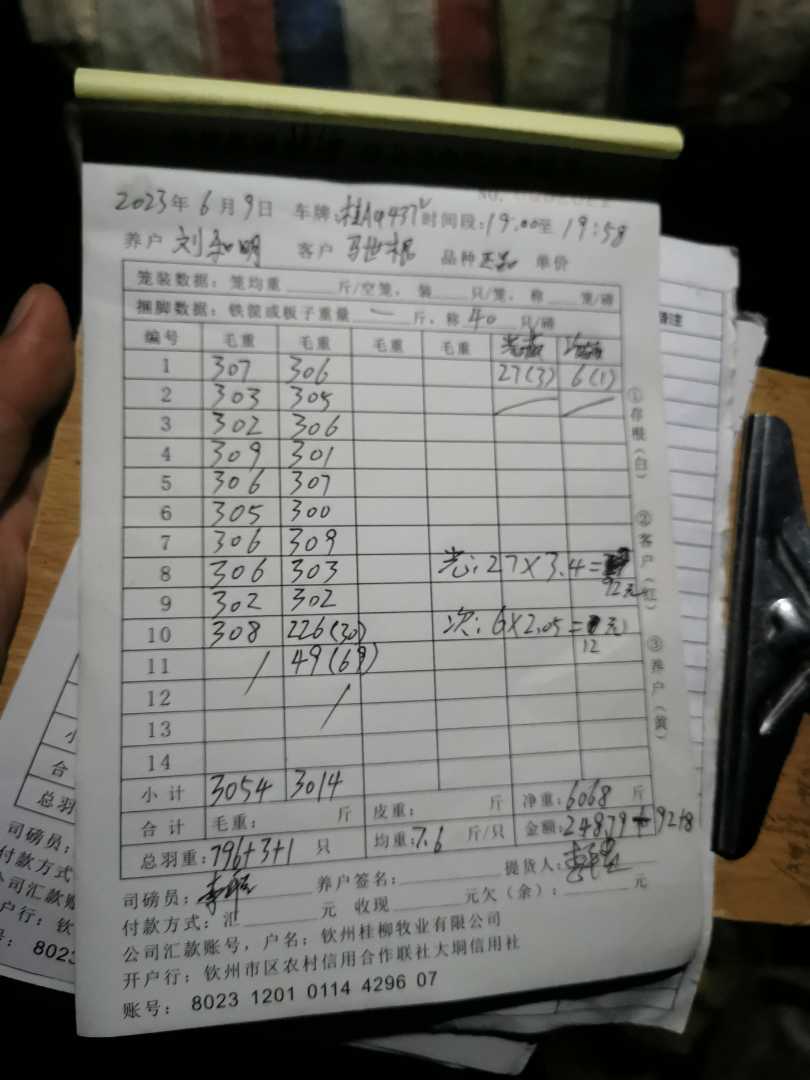 2023年6月9日 车牌:桂A9437 时间段:19:00至19:58
养户 刘和明 客户 马世根 品种 正品 单价
笼装数据：笼均重 斤/空笼，装 只/笼，称 笼/磅
捆脚数据：铁筐或板子重量 一 斤，称 40 只/磅
编号 毛重 毛重 毛重 毛重
1 307 306 27(3) 6(1)
2 303 305
3 302 306
4 309 301
5 306 307
6 305 300
7 306 309
8 306 303 光:27×3.4= 92元
9 302 302
10 308 226(30) 次:6×2.05= 元 12
11 / 49(6只)
12 /
13
14
小计 3054 3014
合计 毛重: 斤 皮重: 斤 净重:6068 斤
总羽重:796+3+1 只 均重:7.6 斤/只 金额:24879
司磅员: 养户签名: 提货人:
付款方式：汇 元 收现 元欠（余）: 元
公司汇款账号，户名：钦州桂柳牧业有限公司
开户行：钦州市区农村信用合作联社大垌信用社
账号：8023 1201 0114 4296 07
①存根(白)
②客户(红)
③养户(黄)
合
总羽
司磅员:
付款方式
公司汇款账
户行：钦
8023
注